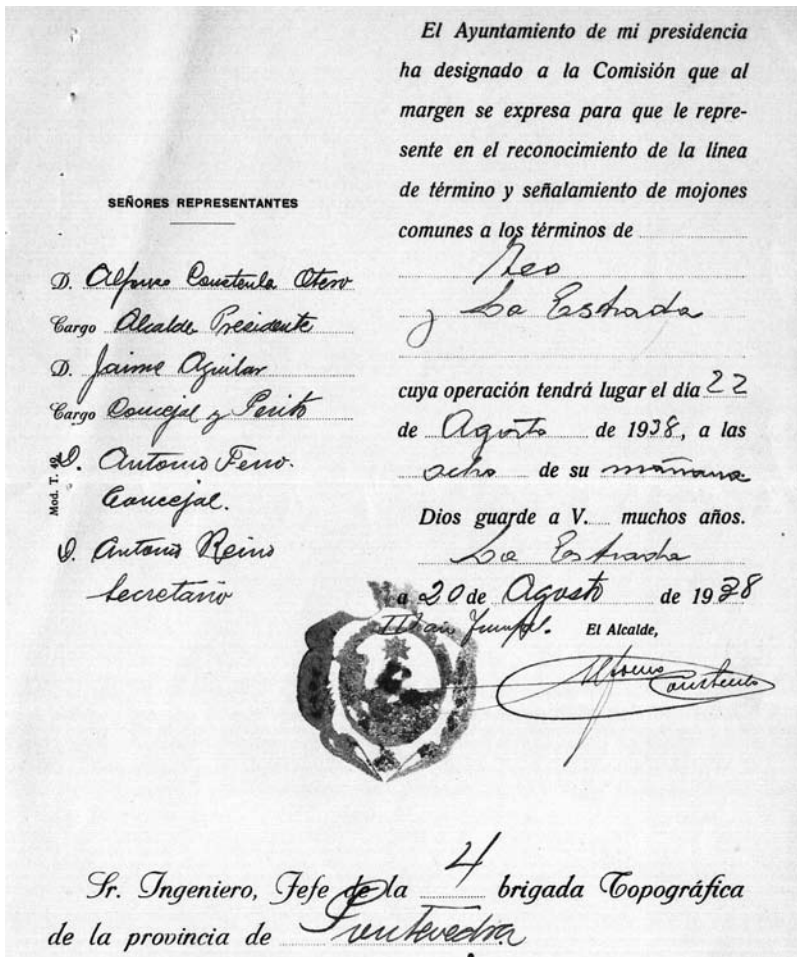 El Ayuntamiento de mi presidencia
ha designado a la Comisión que al
margen se expresa para que le repre-
sente en el reconocimiento de la línea
de término y señalamiento de mojones
comunes a los términos de
Teo
y La Estrada
cuya operación tendrá lugar el día 22
de Agosto de 1938, a las
ocho de su mañana
Dios guarde a V. muchos años.
La Estrada
a 20 de Agosto de 1938
II Año Triunfal.
El Alcalde,
Alfonso Constenla
SEÑORES REPRESENTANTES
D. Alfonso Constenla Otero
Cargo Alcalde Presidente
D. Jaime Aguilar
Cargo Concejal y Perito
D. Antonio Ferro.
Concejal.
D. Antonio Reino
Secretario
Mod. T. 49
Sr. Ingeniero, Jefe de la 4 brigada Topográfica
de la provincia de Pontevedra